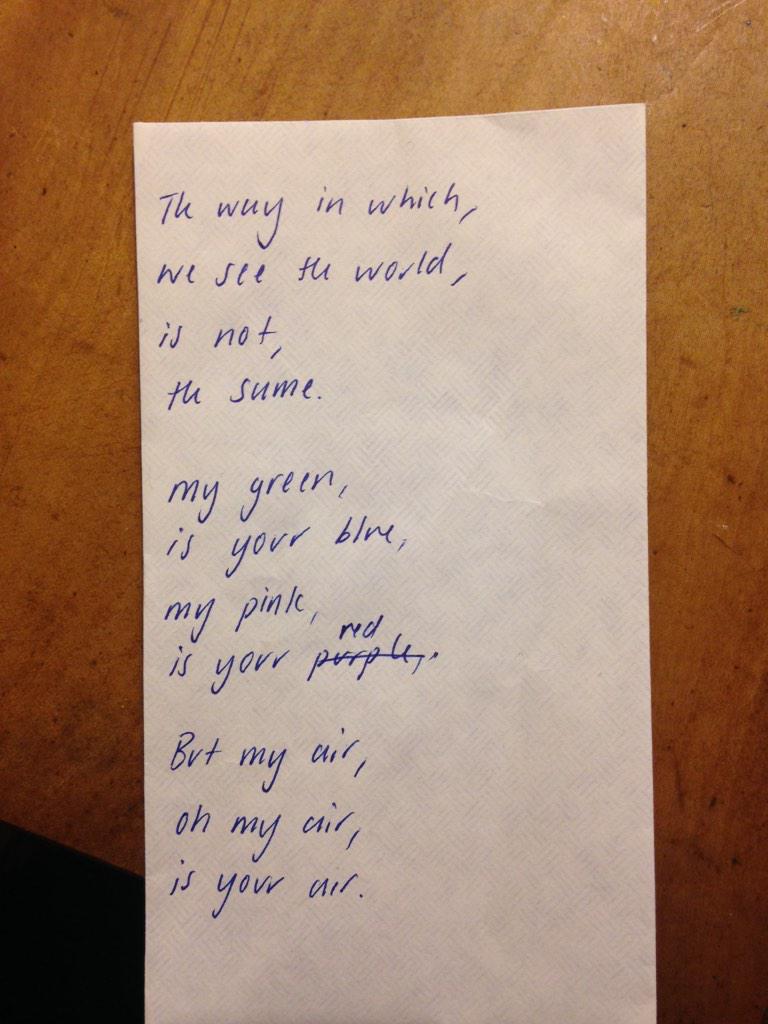 The way in which,
we see the world,
is not,
the same.
my green,
is your blue,
my pink,
red
is your purple,.
But my air,
oh my air,
is your air.